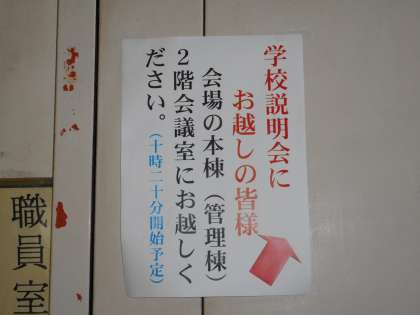 学校説明会に
お越しの皆様
会場の本棟（管理棟）
２階会議室にお越しく
ださい。（十時二十分開始予定）
職員室